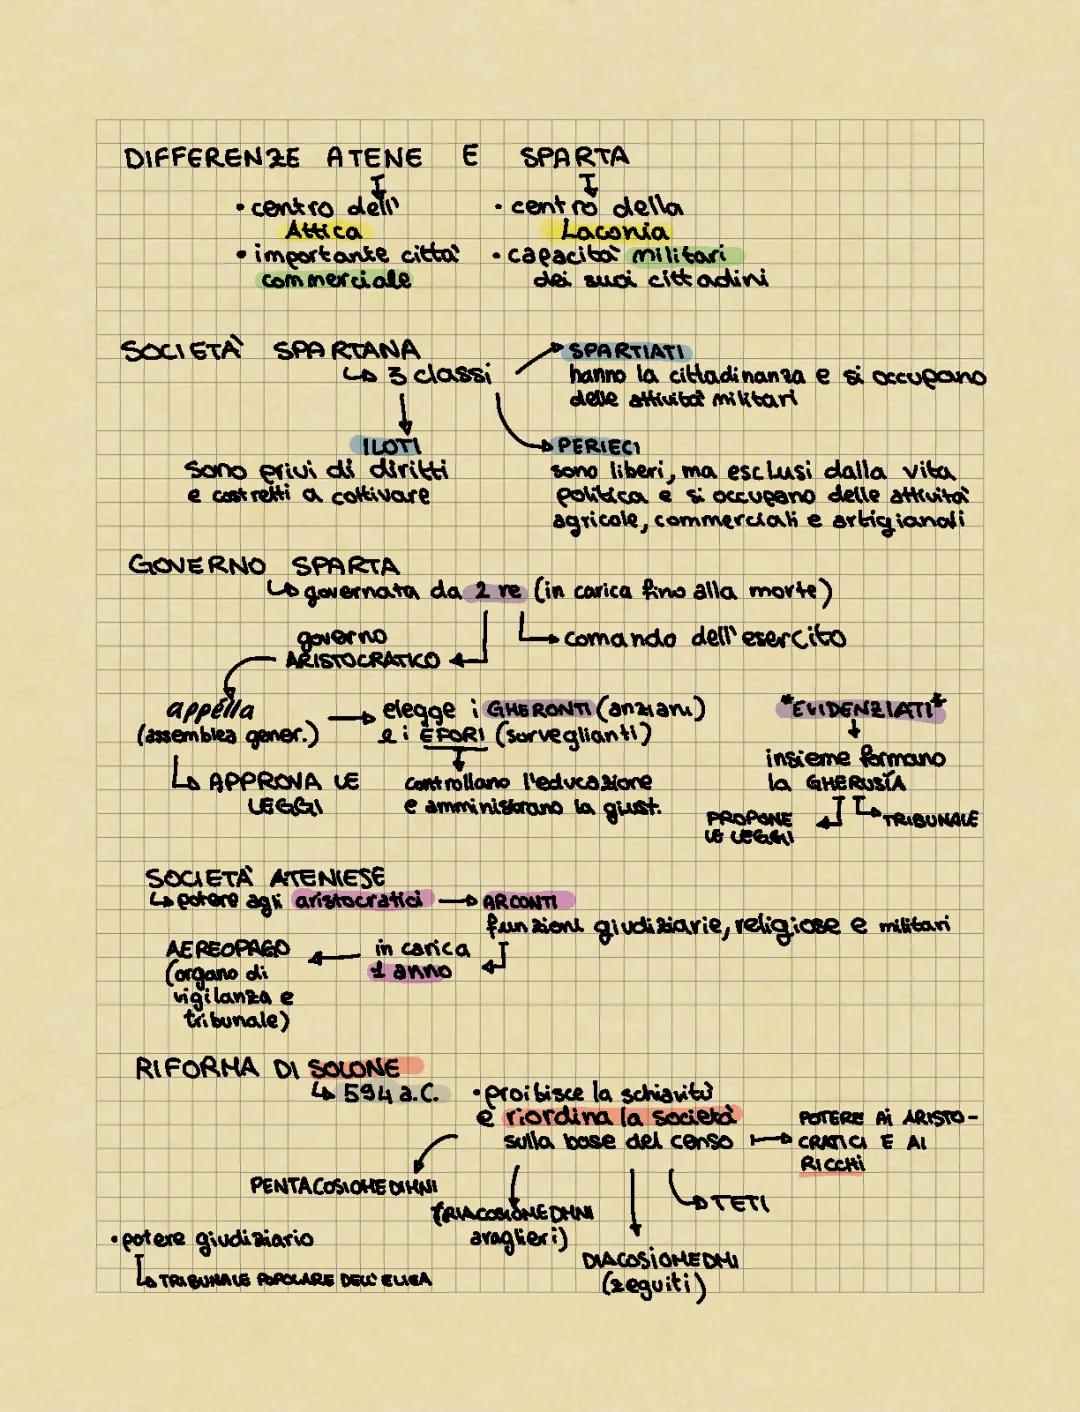 DIFFERENZE ATENE E SPARTA
• centro dell'
Attica
• importante città
commerciale
• centro della
Laconia
• capacità militari
dei suoi cittadini
SOCIETÀ SPARTANA
↳ 3 classi
SPARTIATI
hanno la cittadinanza e si occupano
delle attività militari
ILOTI
sono privi di diritti
e costretti a coltivare
PERIECI
sono liberi, ma esclusi dalla vita
politica e si occupano delle attività
agricole, commerciali e artigianali
GOVERNO SPARTA
↳ governata da 2 re (in carica fino alla morte)
governo
ARISTOCRATICO
comando dell'esercito
appélla
(assemblea gener.)
↳ APPROVA LE
LEGGI
→ elegge i GHERONTI (anziani)
e i EFORI (sorveglianti)
controllano l'educazione
e amministrano la giust.
*EVIDENZIATI*
insieme formano
la GHERUSÌA
PROPONE
LE LEGGI
TRIBUNALE
SOCIETÀ ATENIESE
↳ potere agli aristocratici → ARCONTI
funzioni giudiziarie, religiose e militari
in carica
1 anno
AEREOPAGO
(organo di
vigilanza e
tribunale)
RIFORMA DI SOLONE
↳ 594 a.C.
• proibisce la schiavitù
e riordina la società
sulla base del censo
POTERE AI ARISTO-
CRATICI E AI
RICCHI
PENTACOSIOMEDIMNI
TRIACOSIOMEDMNI
TETI
DIACOSIOMEDMI
(zeguiti)
• potere giudiziario
↳ TRIBUNALE POPOLARE DELL'ELIEA